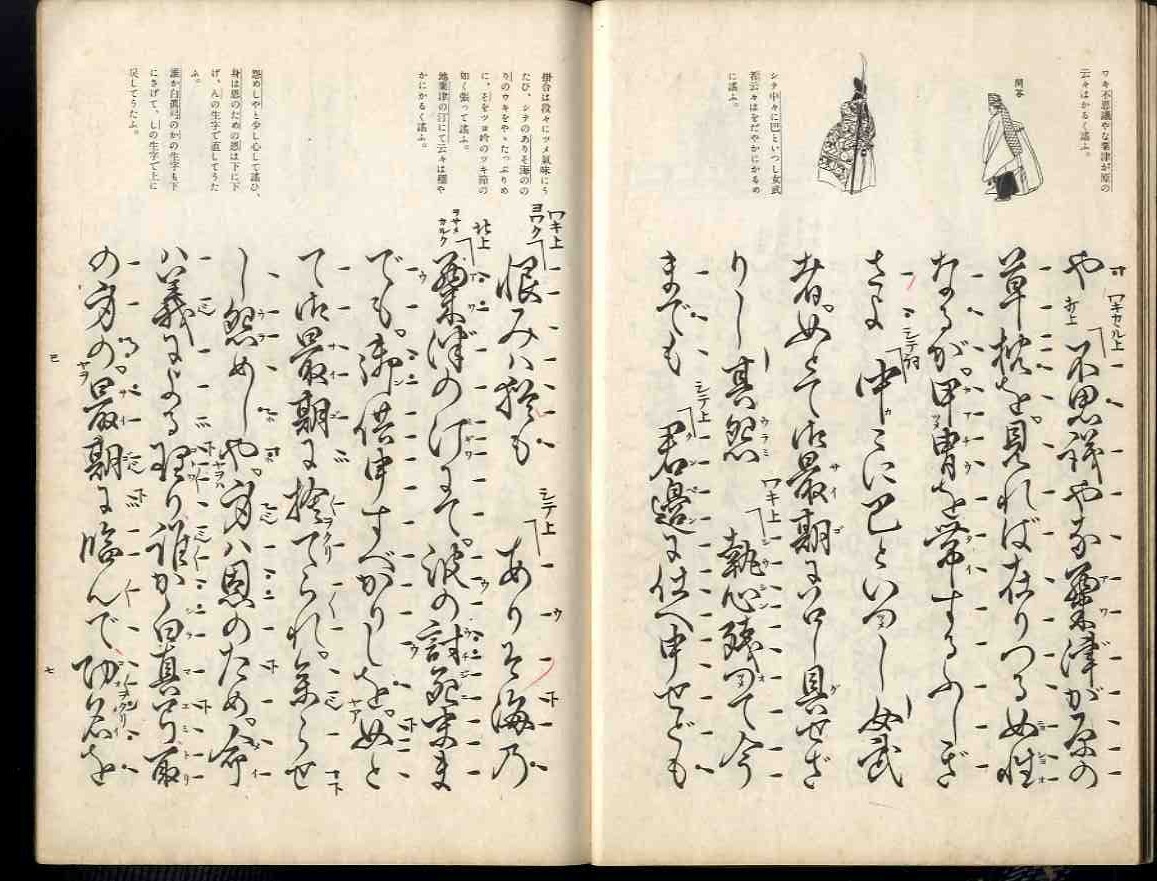 ワキ不思議やな粟津が原の
云々はかるく謠ふ。
問答
シテ中々に巴といつし女武
者云々はをだやかにかるめ
に謠ふ。
や ワキカヽル上 不思議やな粟津が原の
草枕を。見れば在りつる女性
なるが。甲冑を帯するふしぎ
さよ シテ詞 中々に巴といつし女武
者。女とて御最期に召し具せざ
りし 其怨 ワキ上 執心残つて今
までも シテ上 君邊に仕へ申せども
掛合は段々にツメ氣味にう
たひ、シテのありそ海のの
りのウキをやゝたつぷりめ
に、そをツヨ吟のツキ節の
如く張つて謠ふ。
地粟津の汀にて云々は穩や
かにかるく謠ふ。
怨めしやと少し心して謠ひ、
身は恩のための恩は下に下
げ、んの生字で直してうた
ふ。
誰か白眞弓のかの生字も下
にさげて、しの生字で上に
戻してうたふ。
ワキ上 ヨワク 恨みハ猶も シテ上 ありそ海乃
地上 ヲサメカルク 粟津の汀にて。波の討死末ま
でも。御供申すべかりしを。女と
て御最期に捨てられ。参らせ
し怨めしや。身ハ恩のため。命
ハ義による理り誰か白真弓取
の身の。最期に臨んで功名を